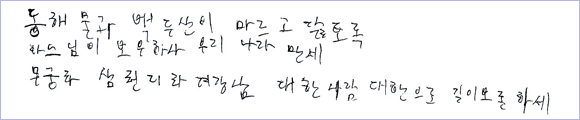 동해 물과 백두산이 마르고 닳도록
하느님이 보우하사 우리 나라 만세
무궁화 삼천리 화려강산 대한사람 대한으로 길이보존하세